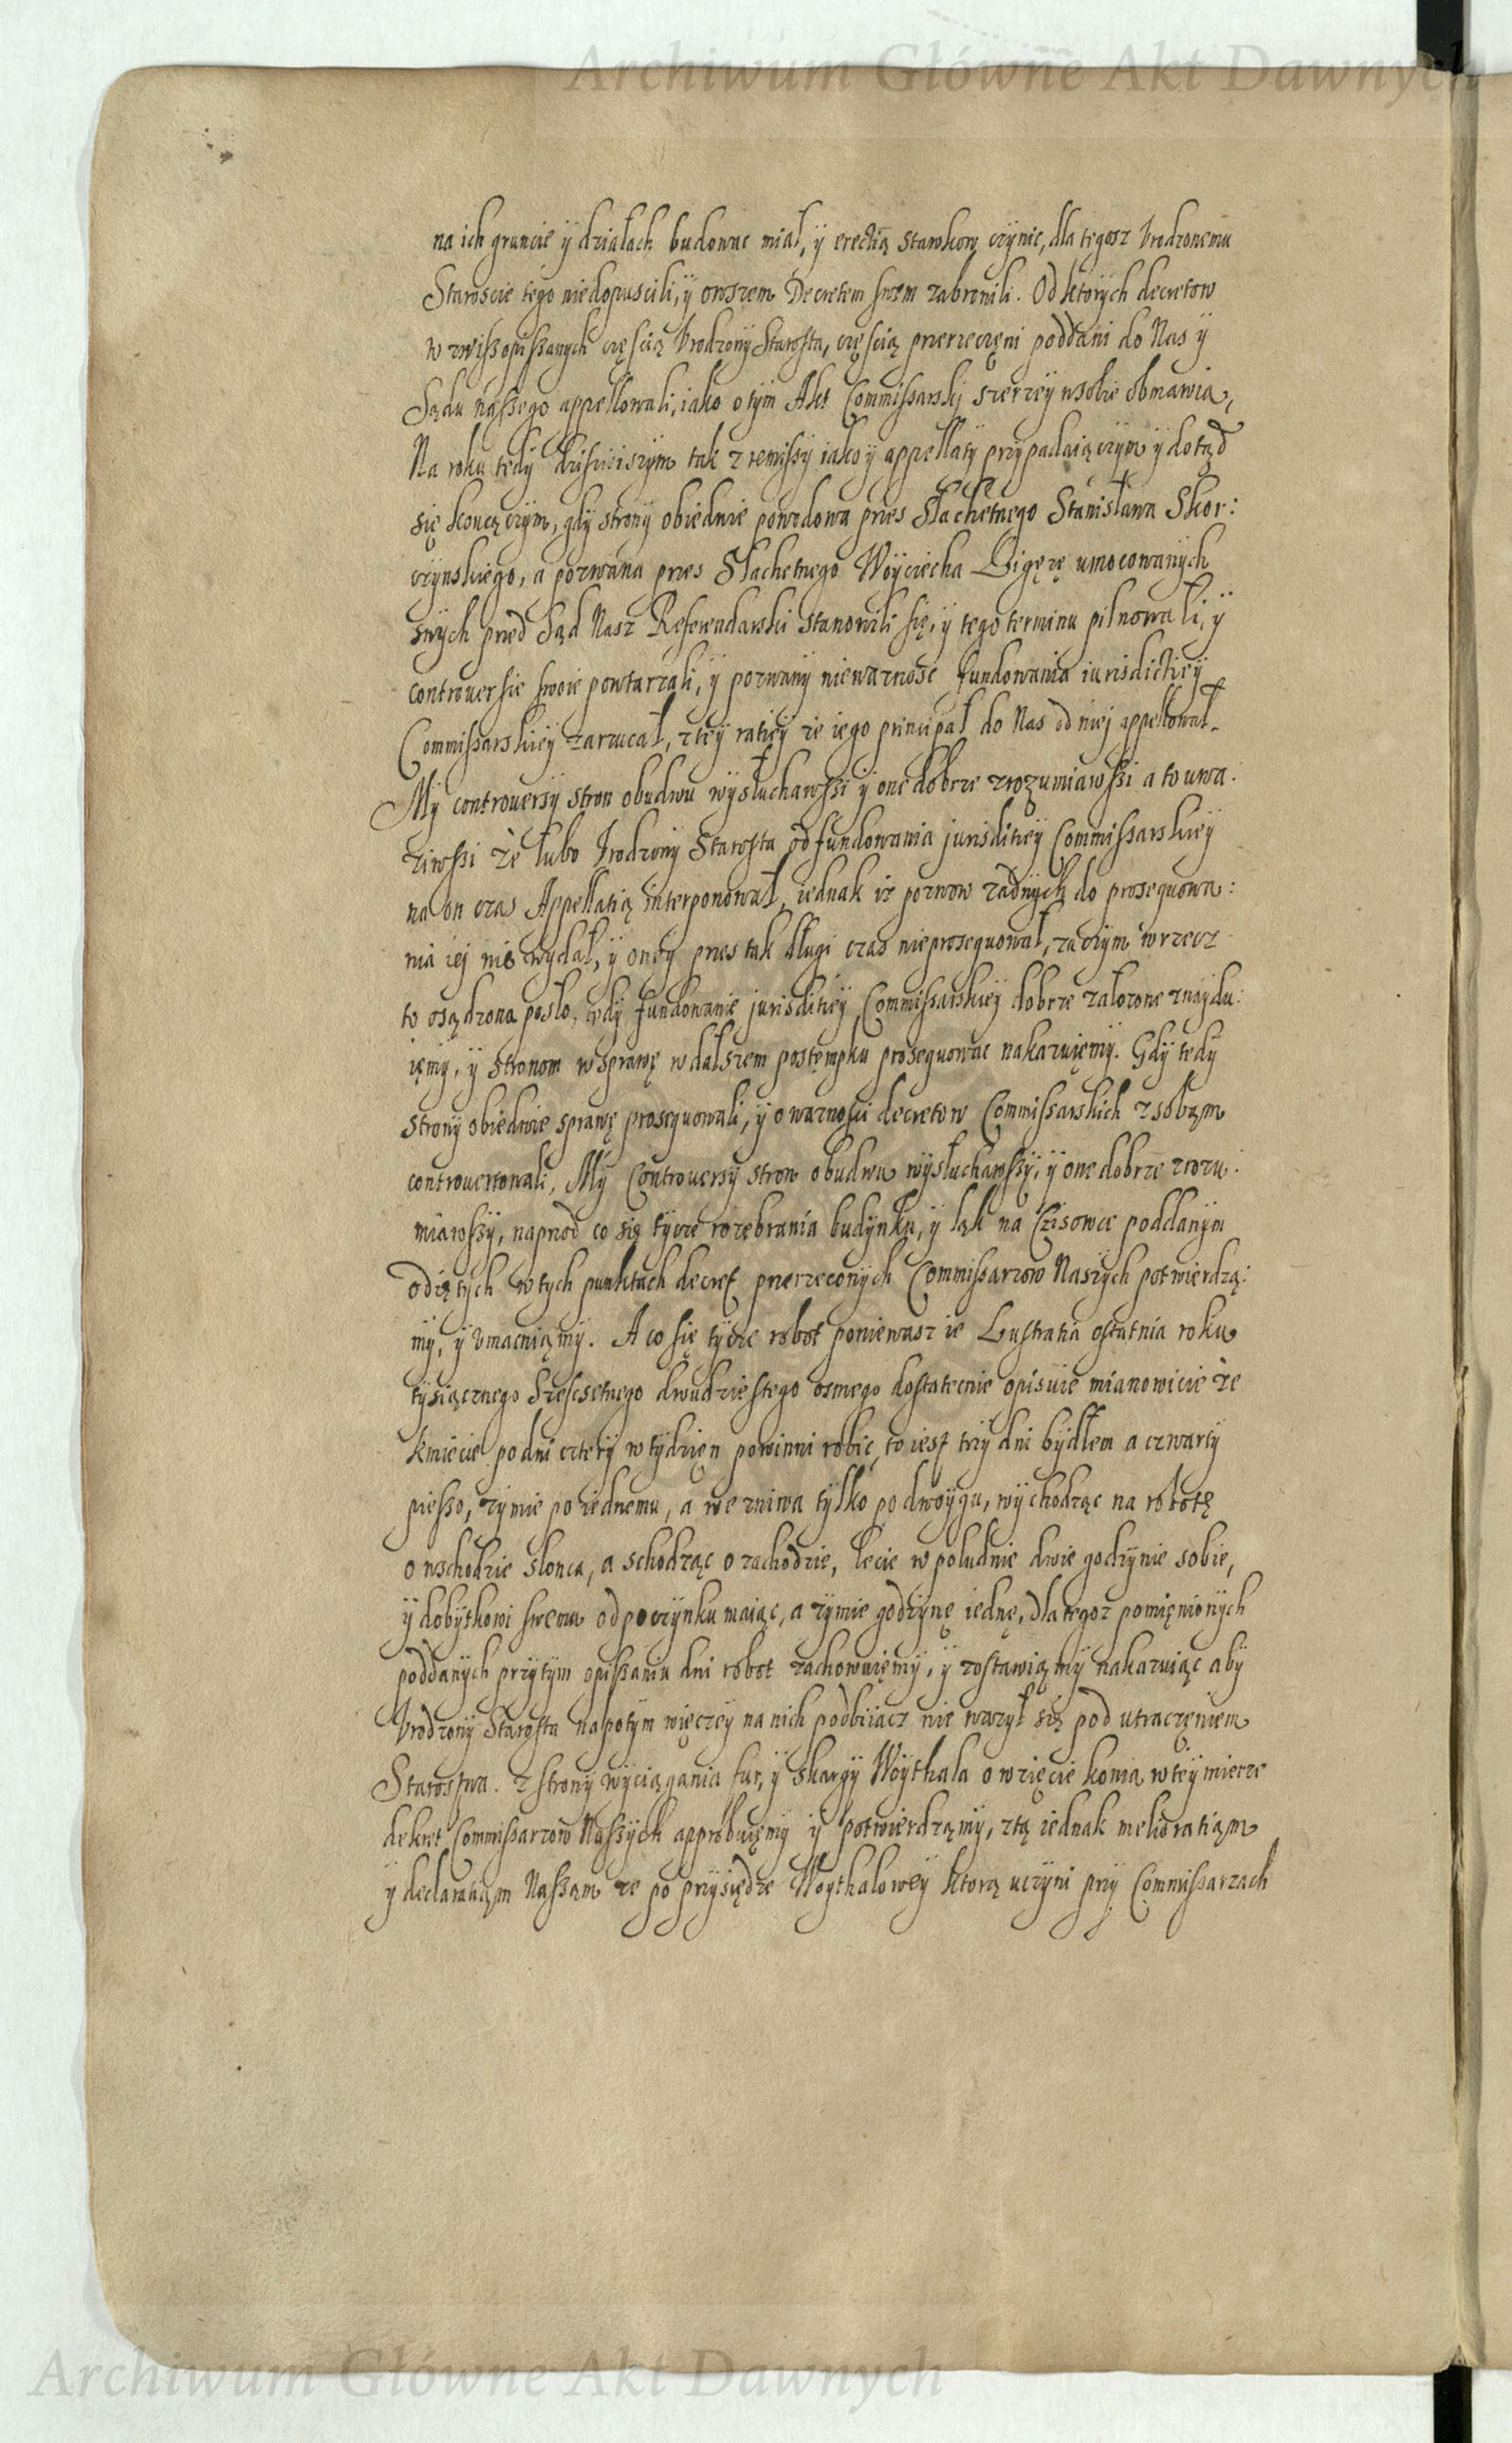 Archiwum Główne Akt Dawnych
na ich gruncie ÿ działach budowac miał, ÿ erectią stawkow czynic, dla tegosz Vrodzonemu
Staroscie tego niedopuscili, ÿ owszem Decretem swem zabronili. Od ktorych decretow
w zwisz opissanych częscią Vrodzony Starosta, częscią przerzeczęni poddani do Nas ÿ
Sądu nassego appellowali, iako o tym Akt Commissarski szerzey wsobie obmawia,
Na roku tedÿ dzisieiszym tak z remissÿ iako ÿ appellatÿ przÿpadaiączym ÿ dotąd
się konczączym, gdÿ stronÿ obiedwie powodowa przes Slachetnego Stanisława Skor:
czynskiego, a pozwana przes Slachetnego Woÿciecha Ligęzę umocowanych
swÿch przed Sąd Nasz Referendarski stanowili się, ÿ tego terminu pilnowali, ÿ
controuersie swoie powtarzali, ÿ pozwanÿ niewaznosc fundowania iurisdictieÿ
Commissarskieÿ zarzucał, z teÿ ratieÿ ze iego principał do Nas od niej appellował.
Mÿ controuersÿ stron obudwu wÿsłuchawssi ÿ one dobrze zrozumiawssi a to uwa:
ziwssi że lubo Vrodzonÿ Starosta od fundowania jurisditieÿ Commissarskieÿ
na on czas Appellatią interponował, iednak iz pozwow żadnÿch do prosequowa:
nia iej nie wÿdał, ÿ oneÿ przes tak długi czas nieprosequował, zaczÿm w rzecz
to osądzona poszło, tedÿ fundowanie jurisditieÿ Commissarskieÿ dobrze załozone znajdu:
ięmÿ, ÿ stronom w sprawę w dalszem postęmpku prosequowac nakazuięmÿ. Gdÿ tedÿ
stronÿ obiedwie sprawę prosequowali, ÿ o waznosci decretow Commissarskich z sobąm
controuertowali, Mÿ Controuersÿ stron obudwu wÿsłuchawssÿ, ÿ one dobrze zrozu:
miawssÿ, naprzod co się tÿcze rozębrania budÿnku, ÿ łąk na Czisowce poddanÿm
odiętÿch w tÿch punktach decret przerzeconÿch Commissarzow Naszÿch potwierdzą:
mÿ, ÿ Vmacniąmÿ. A co się tÿcze robot poniewasz ie Lustratia ostatnia roku
tÿsiącznego Szescsetnego dwudziestego osmego dostatecnie opisuie mianowicie że
kmiecie po dni czterÿ w tÿdzięn powinni robic, to iest trzÿ dni bÿdłem a czwartÿ
piesso, zÿmie po iednemu, a we zniwa tÿlko po dwoÿgu, wÿchodząc na robotę
o wschodzie slonca, a schodząc o zachodzie, lecie w południe dwie godzÿnie sobie,
ÿ dobÿtkowi swemu odpoczÿnku maiąc, a zÿmie godzÿnę iednę, dla tegoz pomięnionÿch
poddanÿch przÿ tÿm opissaniu dni robot zachowuięmÿ, ÿ zostawiąmÿ nakazuiąc abÿ
Vrodzonÿ Starosta napotÿm więczeÿ na nich podbiiacz nie wazÿł się pod utraczęniem
Starostwa. Z stronÿ wÿciągania fur, ÿ skargÿ Woÿthala o wzięcie konia w teÿ mierze
dekret Commissarzow Nassÿch approbuięmÿ ÿ potwierdząmÿ, z tą iednak melioratiąm
ÿ declaratiąm Nassąm ze po przÿsiędze Woÿthaloweÿ ktorą uczÿni przÿ Commissarzach
Archiwum Główne Akt Dawnych